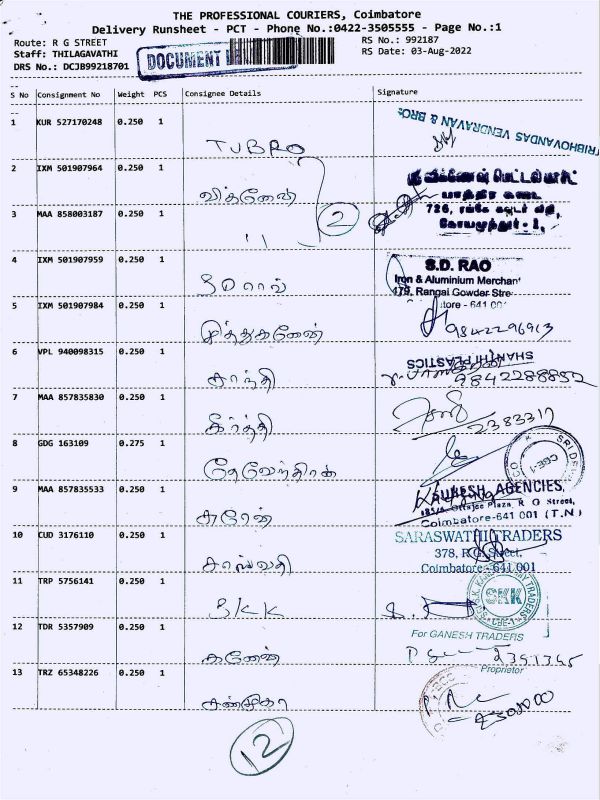 THE PROFESSIONAL COURIERS, Coimbatore
Delivery Runsheet - PCT - Phone No.:0422-3505555 - Page No.:1
Route: R G STREET
RS No.: 992187
Staff: THILAGAVATHI
RS Date: 03-Aug-2022
DRS No.: DCJB99218701
DOCUMENT
S No Consignment No Weight PCS Consignee Details Signature
1 KUR 527170248 0.250 1
TUBRO
TRIBHOVANDAS VENDRAVAN & BRO.
2 IXM 501907964 0.250 1
விக்னேஷ்
726,
2
3 MAA 858003187 0.250 1
" 
4 IXM 501907959 0.250 1
S D ராவ்
S.D. RAO
Iron & Aluminium Merchant
479, Rangai Gowder Stre
tore - 641 00
5 IXM 501907984 0.250 1
முத்துகணேஷ்
9842296913
6 VPL 940098315 0.250 1
சாந்தி
SHANTHI PLASTICS
9842288852
7 MAA 857835830 0.250 1
கீர்த்தி
2383317
8 GDG 163109 0.275 1
SRI DE
CBE-1
9 MAA 857835533 0.250 1
சுரேஷ்
SURESH AGENCIES,
Plaza, R G Street,
Coimbatore-641 001 (T.N)
10 CUD 3176110 0.250 1
சரஸ்வதி
SARASWATHI TRADERS
378, R.G. Street,
Coimbatore - 641 001
11 TRP 5756141 0.250 1
SKK
SKK
TRADERS
CBE-1
12 TDR 5357909 0.250 1
கணேஷ்
For GANESH TRADERS
Proprietor
13 TRZ 65348226 0.250 1
சண்முகா
12